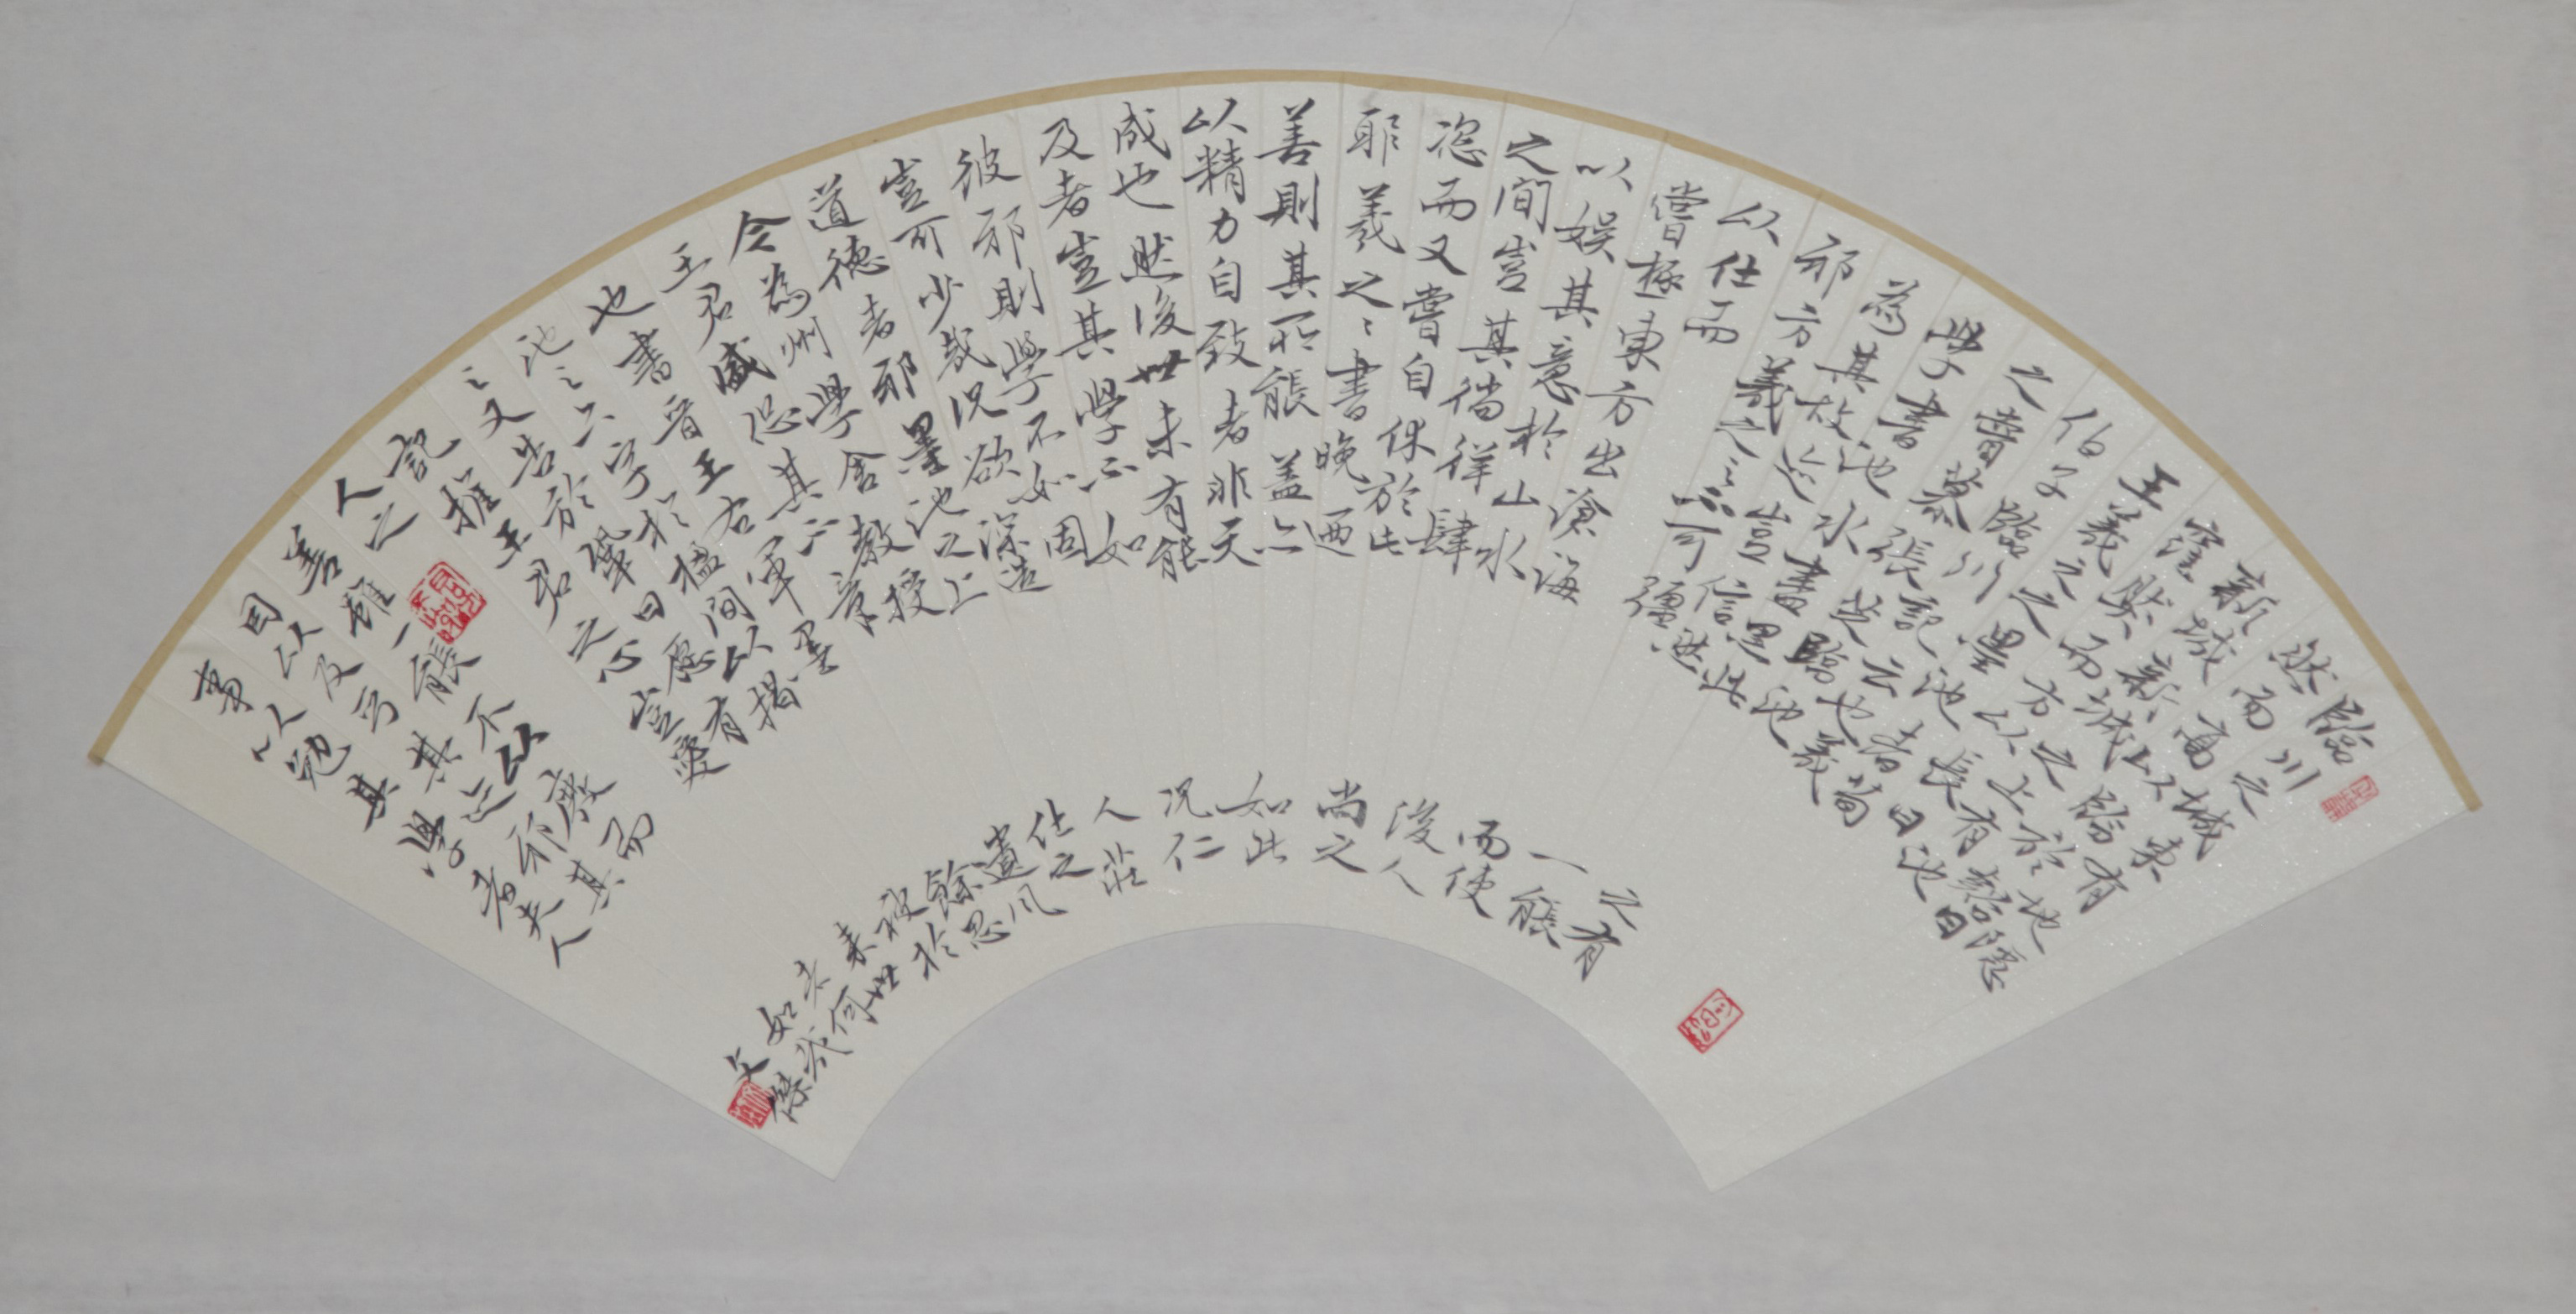 臨川之城東有地隱
然而高以臨於谿曰
新城新城之上有池
窪然而方以長曰
王羲之之墨池者荀
伯子臨川記云也羲
之嘗慕張芝臨池
學書池水盡黑此
為其故迹豈信然
邪方羲之之不可彊
以仕而
嘗極東方出滄海
以娛其意於山水
之間豈其徜徉肆
恣而又嘗自休於此
耶羲之〻書晚迺
善則其所能蓋亦
以精力自致者非天
成也然後世未有能
及者豈其學不如
彼邪則學不如固
豈可少哉況欲深造
道德者邪墨池之上
今為州學舍教授
王君盛恐其不章
也書晉王右軍墨
池之六字於楹間以揭
之又告於鞏曰愿有
記推王君之心豈愛
人之
善雖一能不以廢而
因以及乎其迹邪其
事以勉其學者夫人
之有
一能
而使
後人
尚之
如此
況仁
人莊
仕之
遺風
餘思
被於
来世
者何
如哉
文傑